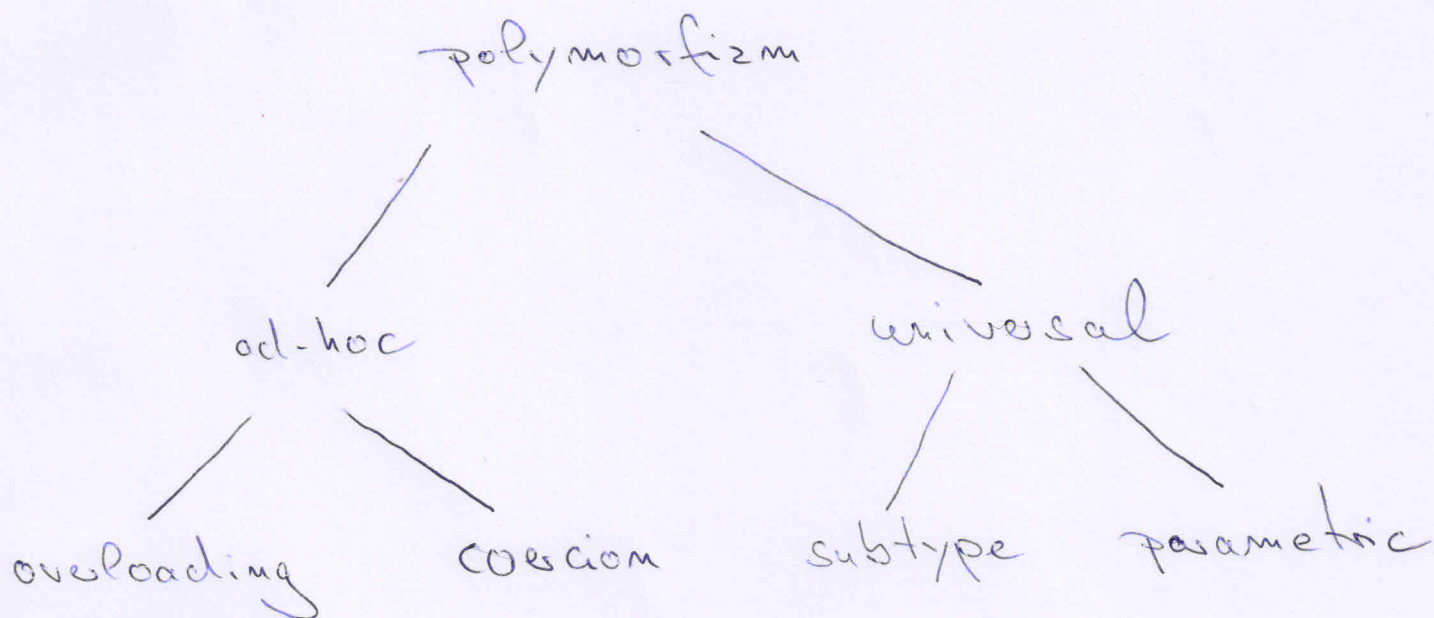 polymorfizm
ad-hoc universal
overloading coercion subtype parametric